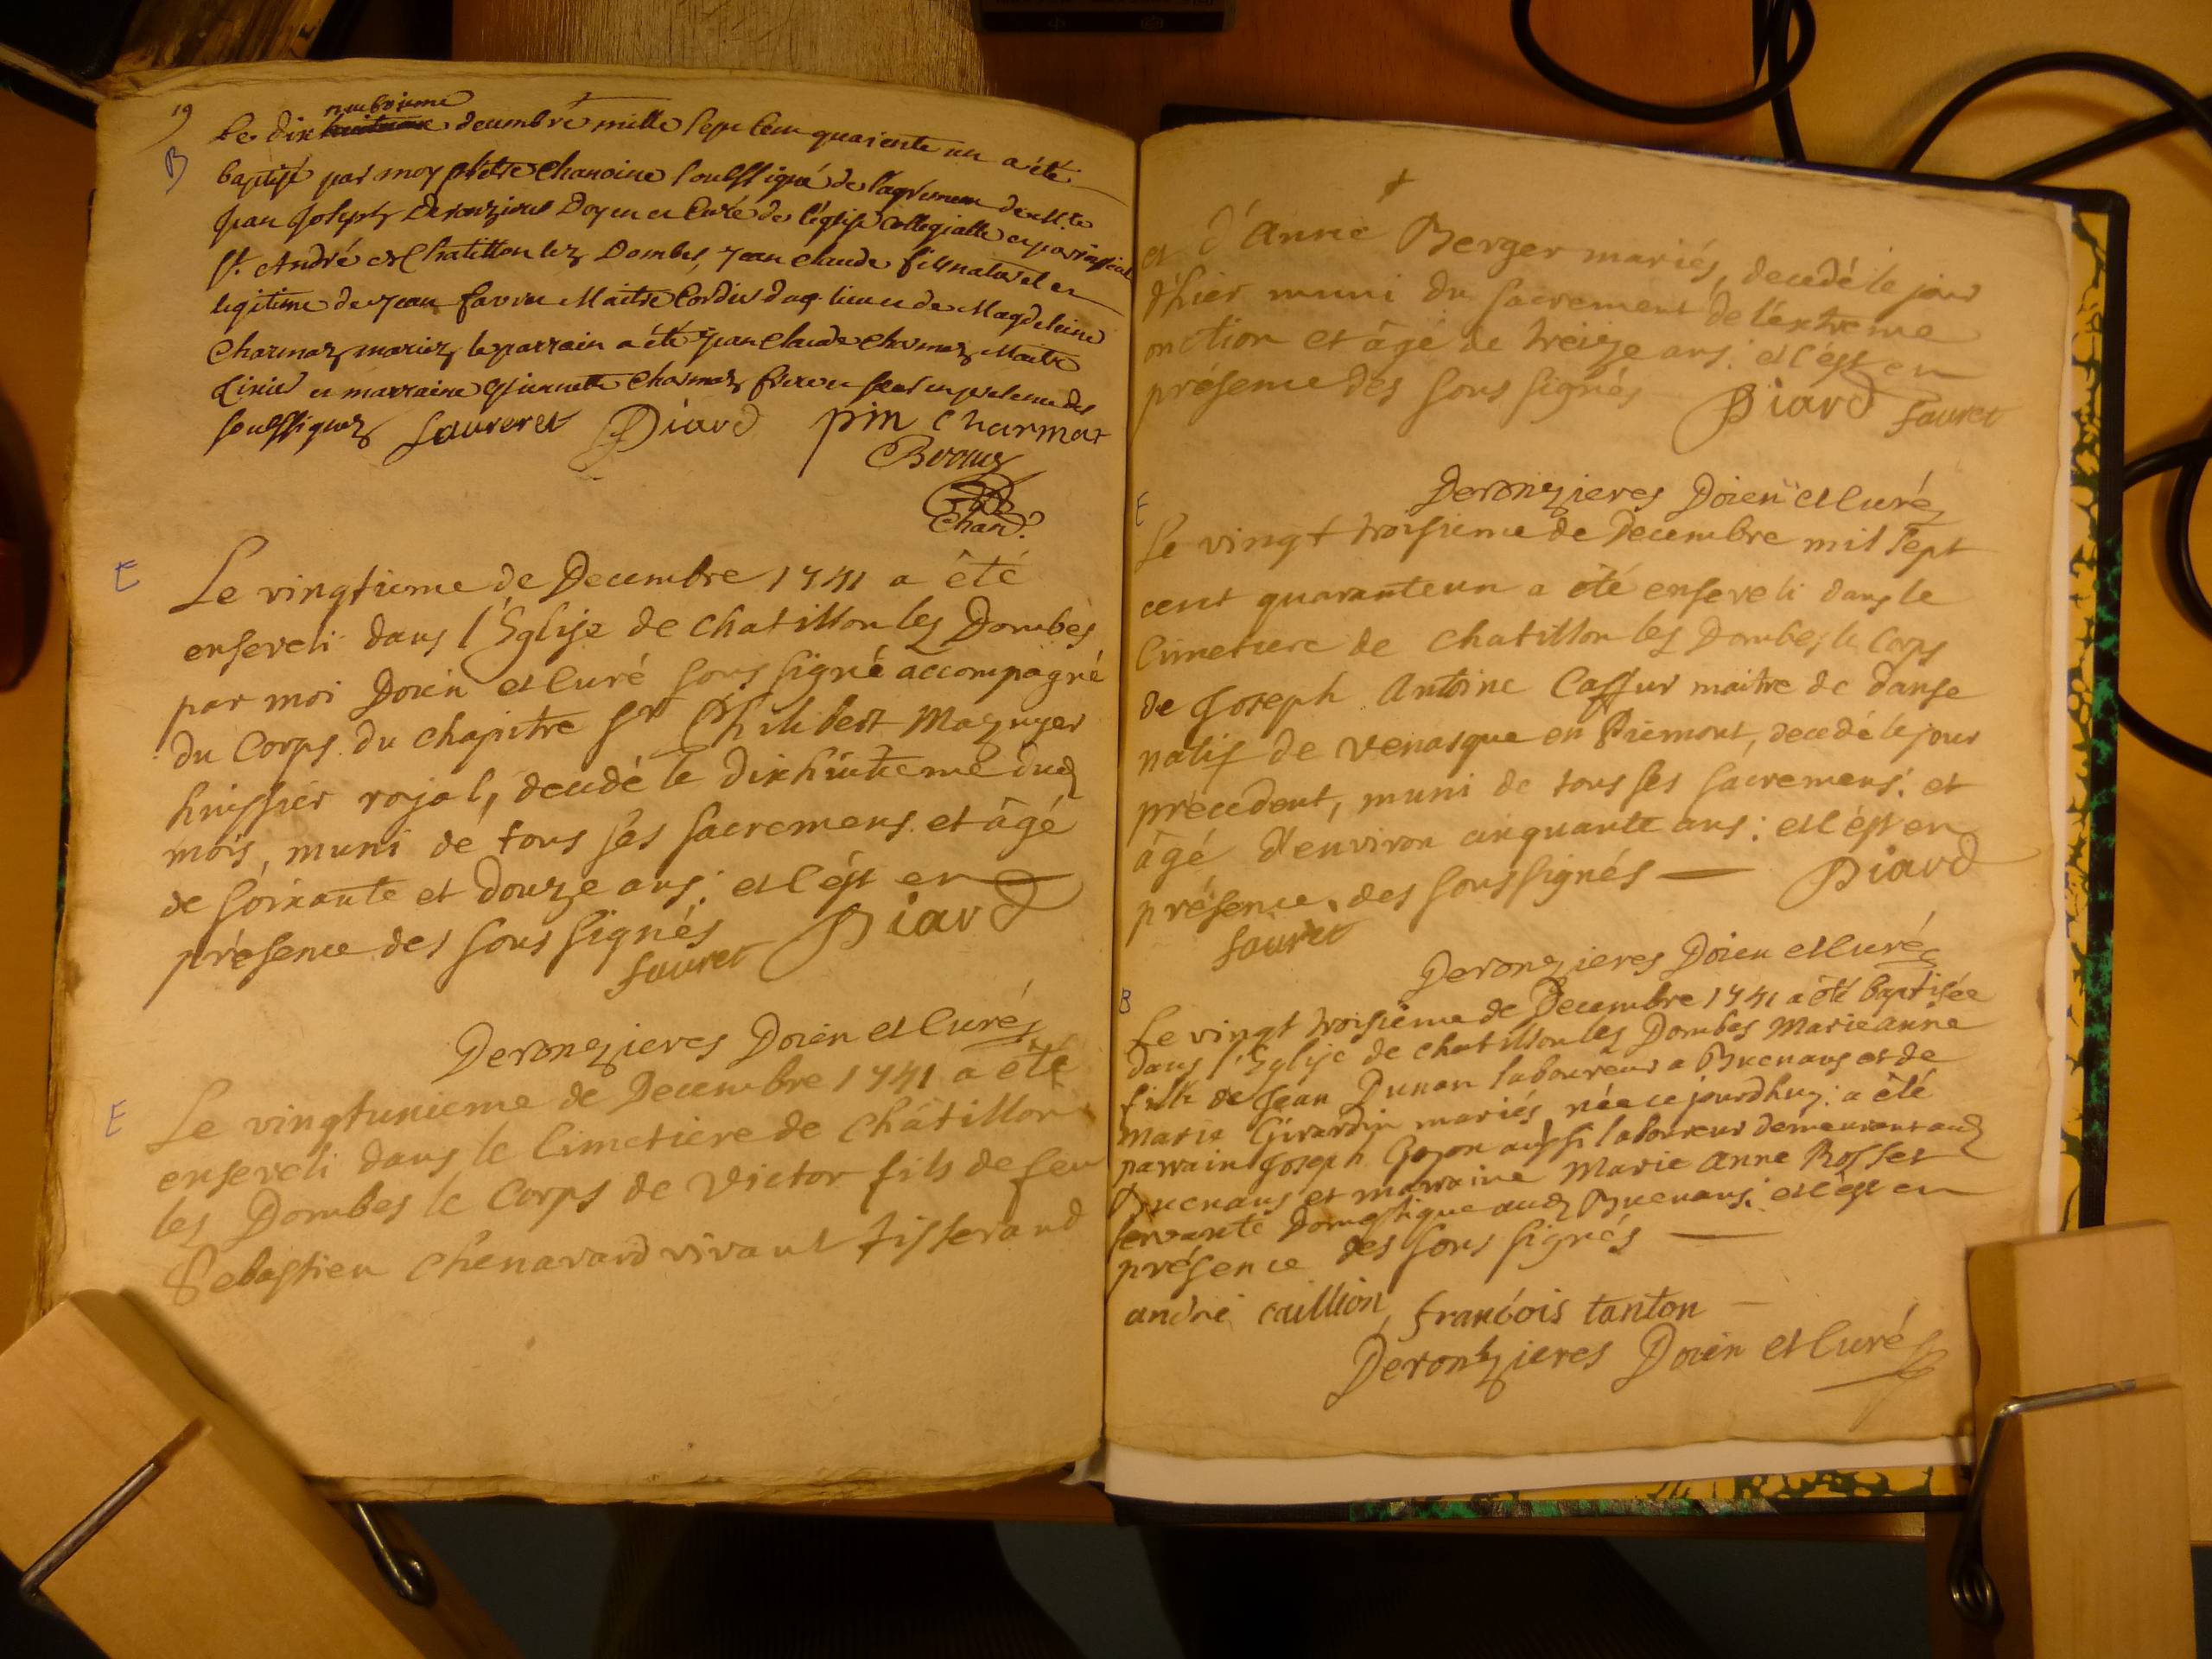 19
neuvieme
Le dix huitieme decembre mille sept cent quarente un a été
B
baptisé par moy pbetre chanoine soussigné de l'agrement de Mre
Jean Joseph Deronzieres Doyen et Curé de l'église collegialle et paroissial
St. André de Chatillon lez Dombes, Jean Claude fils naturel et
legitime de Jean favre Maitre Cordier dud. lieu et de Magdeleine
Charmaz mariez, le parrain a été Jean Claude Charmaz Maitre
et marraine Charmaz frere et seur en presence des
soussignez Sauveret Diard pin Charmat
Chan.
E
Le vingtieme de Decembre 1741 a été
enseveli dans l'Eglise de chatillon les Dombes
par moi Doien et Curé sous signé accompagné
du Corps du chapitre Sr Philibert Mazuyer
huissier roial, decedé le dixhuitieme dud
mois, muni de tous ses sacremens. et âgé
de soixante et douze ans: et c'est en
présence des sous signés Diard
Sauret
Deronzieres Doien et Curé
E
Le vingtunieme de Decembre 1741 a été
enseveli dans le Cimetiere de Châtillon
les Dombes le Corps de Victor fils de feu
Sebastien Chenavard vivant tisserand
et d'Anne Berger mariés, decedé le jour
d'hier muni du sacrement de l'extreme
onction et âgé de treize ans: et c'est en
présence des sous signés Diard Sauret
Deronzieres Doien et Curé
E
Le vingt troisieme de Decembre mil sept
cent quarante un a été enseveli dans le
Cimetiere de chatillon les Dombes le Corps
de Joseph Antoine Cassur maitre de danse
natif de Venasque en Piemont, decedé le jour
précedent, muni de tous ses sacremens: et
âgé d'environ cinquante ans: et c'est en
présence des soussignés — Diard
Sauret
Deronzieres Doien et Curé
B
Le vingt troisieme de Decembre 1741 a été baptisée
dans l'Eglise de chatillon les Dombes Marieanne
fille de Jean Dunan laboureur a Buenans et de
Marie Girardin mariés, née ce jourdhuy: a été
parrain Joseph Goyon aussi laboureur demeurant aud
Buenans et marraine Marie Anne Rosset
servante domestique aud Buenans: et c'est en
présence des sous signés —
andré caillion, francois tanton —
Deronzieres Doien et Curé